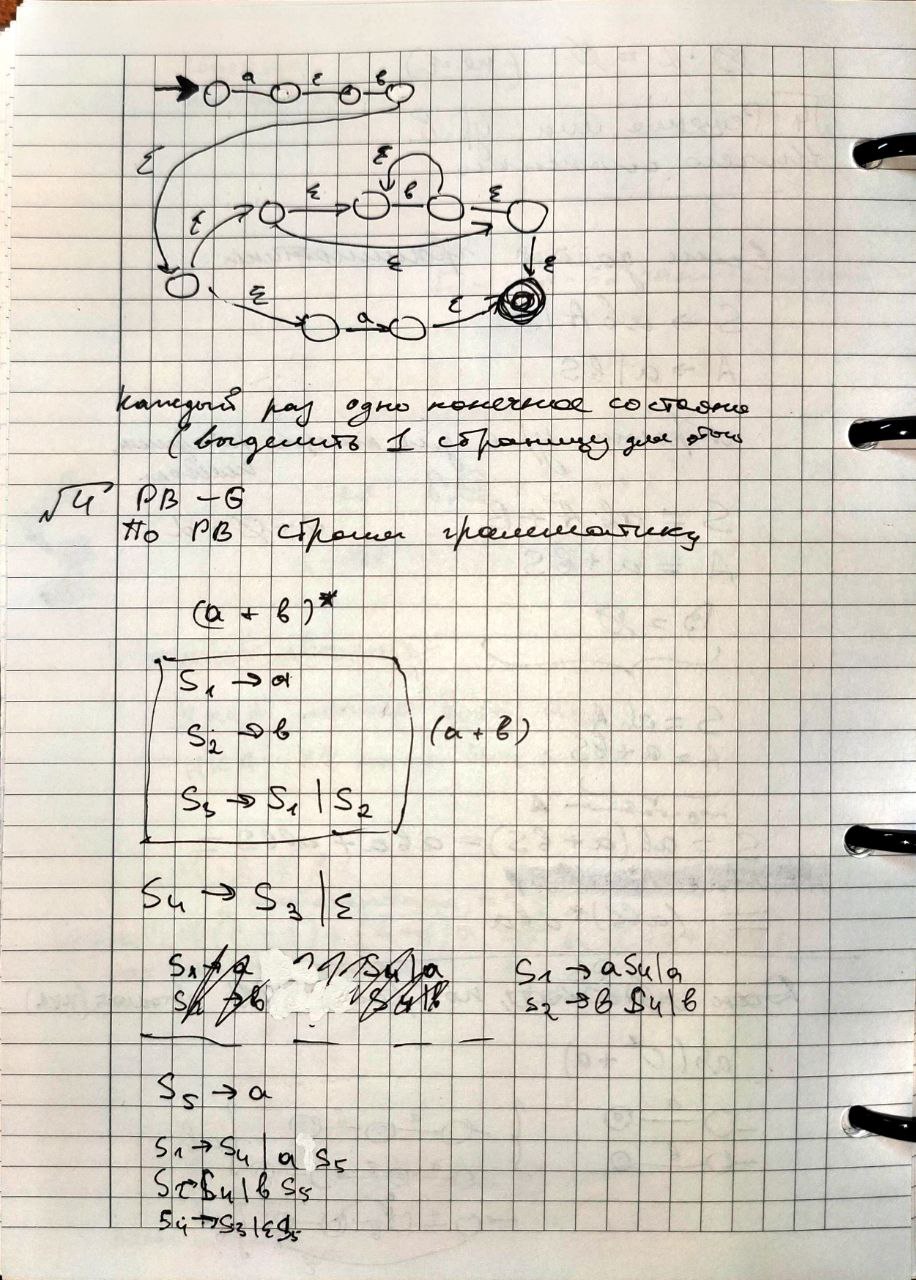 a ε в
ε
ε ε в ε
ε ε
ε
ε a ε
каждый раз одно конечное состояние
(выделить 1 страницу для этого
√4 РВ – G
По РВ строим грамматику
(a + в)*
S₁ → a
S₂ → в (a + в)
S₃ → S₁ | S₂
S₄ → S₃ | ε
S₁ → a S₄ | a S₁ → a S₄ | a
S₂ → в S₄ | в S₂ → в S₄ | в
S₅ → a
S₁ → S₄ | a S₅
S₂ → S₄ | в S₅
S₄ → S₃ | ε S₅